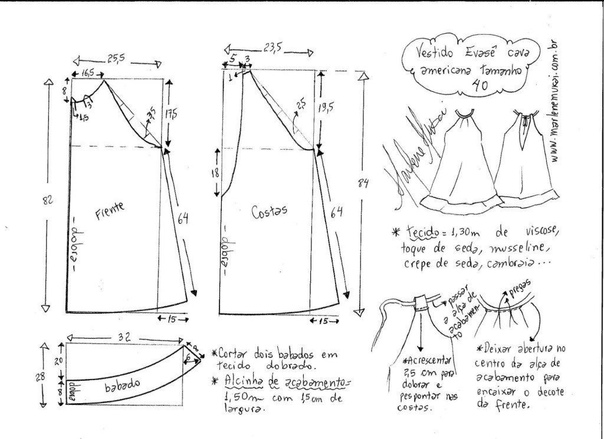 25,5
16,5
8
1,5
3
3,5
17,5
82
Frente
dobra
64
15
23,5
5
3
1
2,5
19,5
18
84
Costas
dobra
64
15
Vestido Evasê cava
americana tamanho
40
www.marlenemukai.com.br
Marlene Mukai
* tecido = 1,30m de viscose,
toque de seda, musseline,
crepe de seda, cambraia...
32
28
20
8
8
6
dobra
babado
*Cortar dois babados em
tecido dobrado.
* Alcinha de acabamento=
1,50m com 1,5cm de
largura.
passar
a alça de
acabamento
*Acrescentar
2,5 cm para
dobrar e
pespontar nas
costas.
pregas
*Deixar abertura no
centro da alça de
acabamento para
encaixar o decote
da frente.